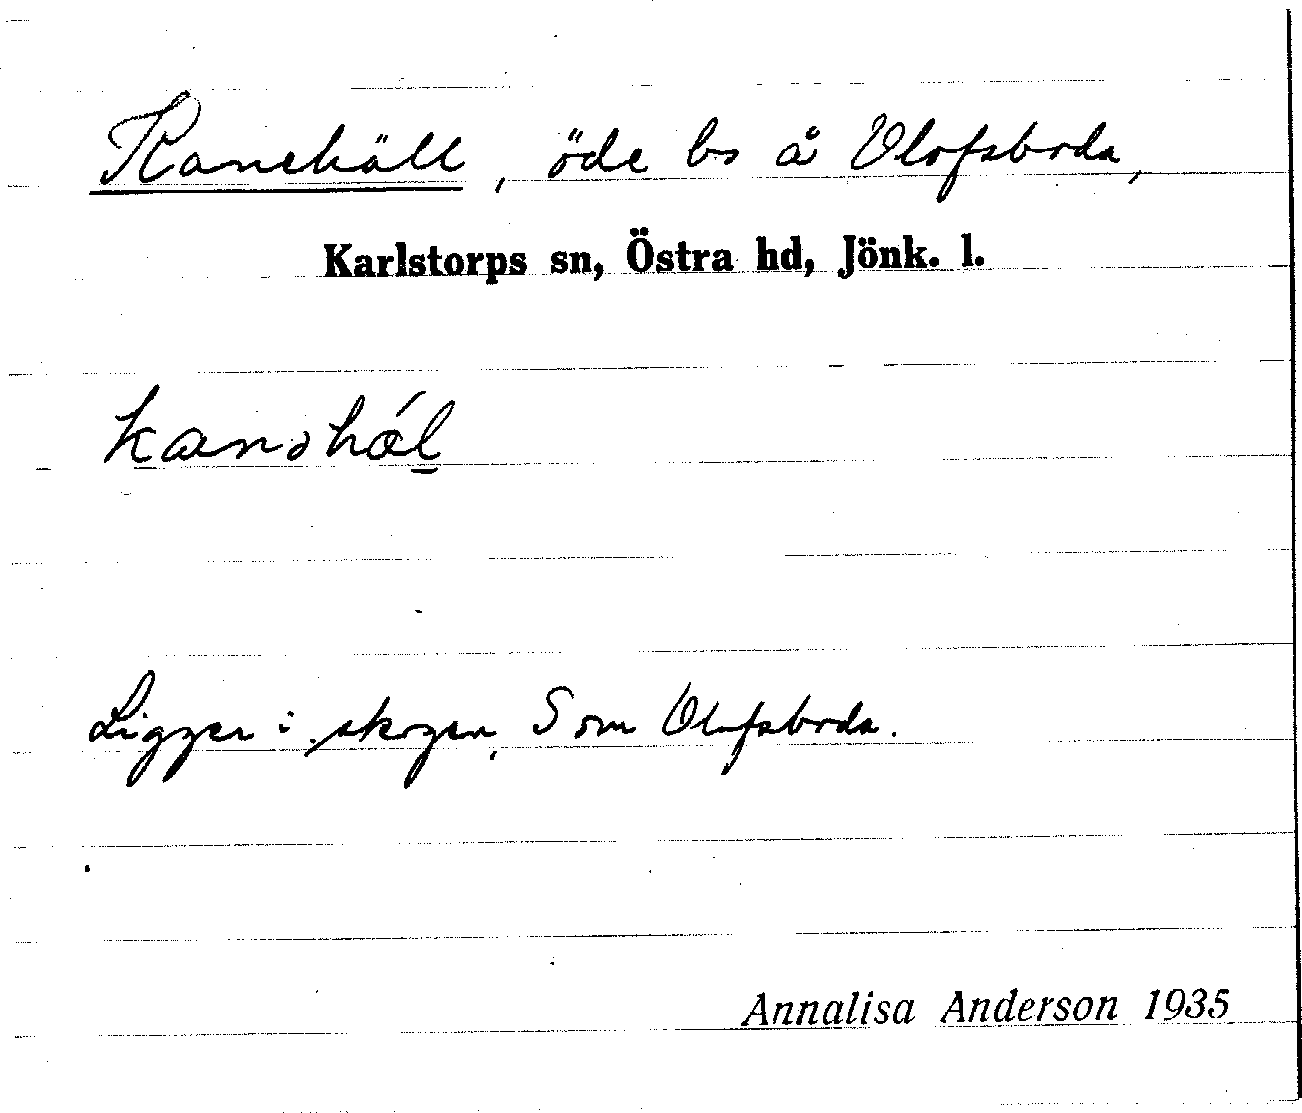 Kanehäll, öde bs å Olofsboda,
Karlstorps sn, Östra hd, Jönk. l.
kanəhǽl̲
Ligger i skogen, S om Olofsboda.
Annalisa Anderson 1935